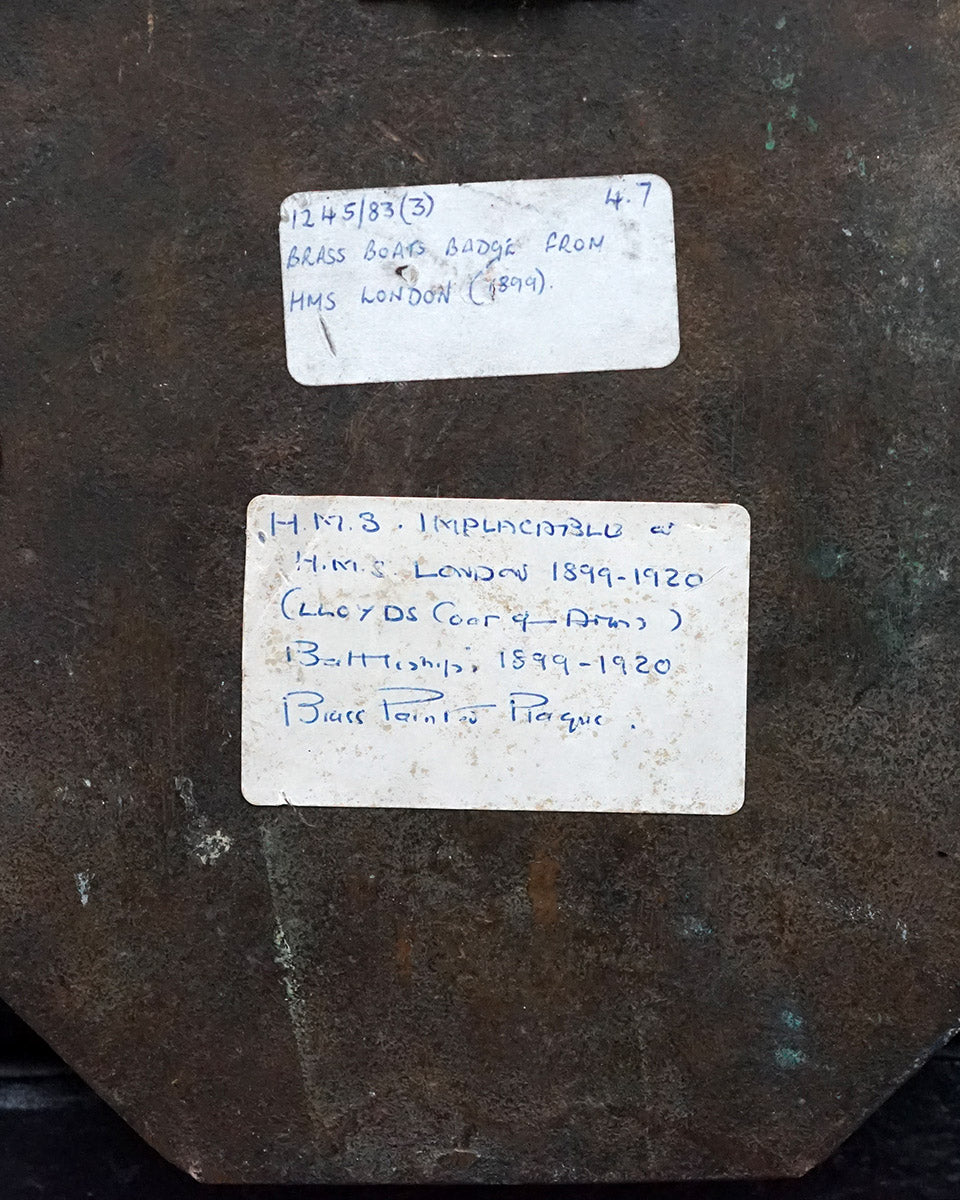 1245/83(3) 4.7
BRASS BOATS BADGE FROM
HMS LONDON (1899).
H.M.S. IMPLACABLE or
H.M.S. LONDON 1899-1920
(LLOYDS Coat of Arms)
Battleship. 1899-1920
Brass Painted Plaque.